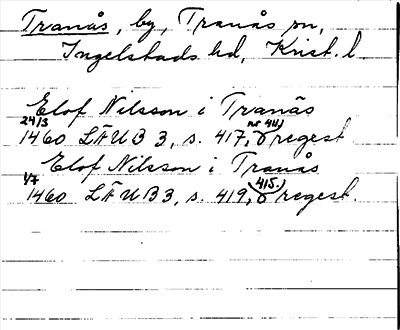 Tranås, by, Tranås sn,
Ingelstads hd, Krist. l.
Elof Nilsson i Tranås
24/3 1460 LÄUB 3, s. 417, nr 411) regest
Elof Nilsson i Tranås
1/7 1460 LÄUB 3, s. 419, 415.) regest.